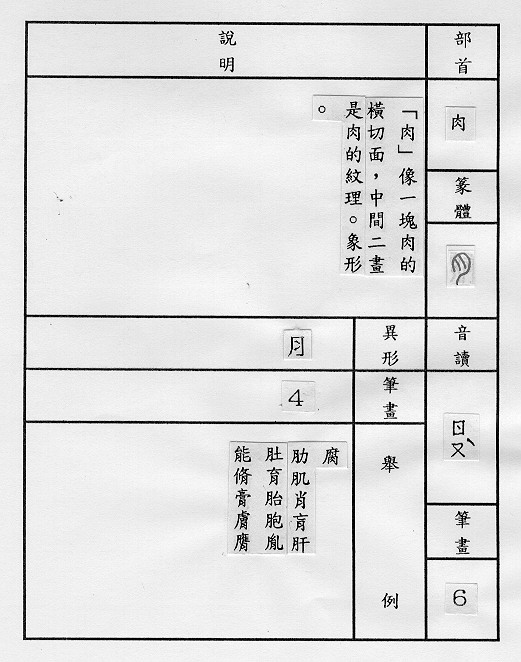 部首
肉
篆體
音讀
ㄖㄡˋ
筆畫
6
說明
「肉」像一塊肉的
橫切面，中間二畫
是肉的紋理。象形
。
異形
⺼
筆畫
4
舉例
腐
肋肌肖肓肝
肚育胎胞胤
能脩膏膚膺